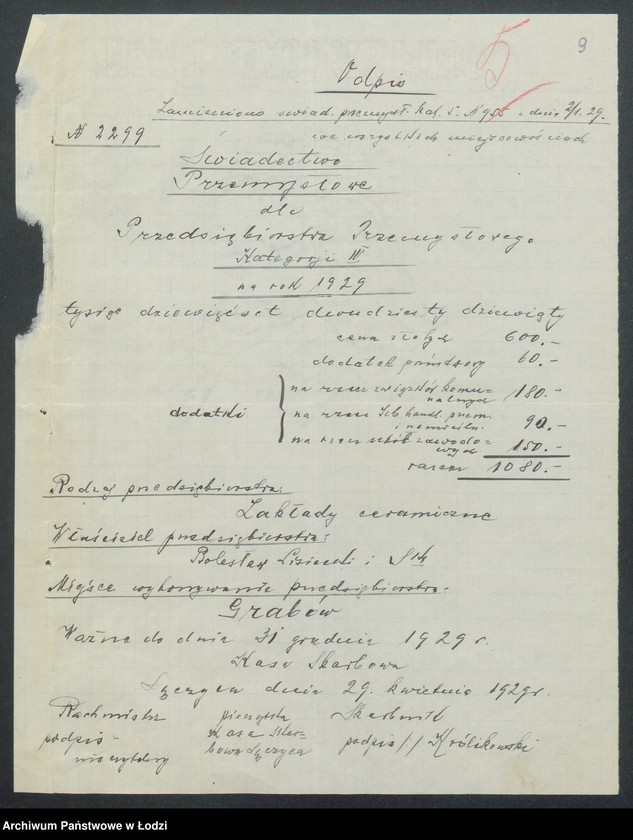 5
9
Odpis
Zamieniono świad. przemysł. kat. 5. N 955 z dnia 2/1. 29.
N 2299
we wszystkich miejscowościach
Świadectwo
Przemysłowe
dla
Przedsiębiorstwa Przemysłowego
Kategorji IV
na rok 1929
tysiąc dziewięćset dwudziesty dziewiąty
cena złotych 600.-
dodatek państwowy 60.-
dodatki
na rzecz związków komu-
nalnych 180.-
na rzecz Izb handl. przem.
i rzemieśln. 90.-
na rzecz szkół zawodo-
wych 150.-
razem 1080.-
Rodzaj przedsiębiorstwa:
Zakłady ceramiczne
Właściciel przedsiębiorstwa:
Bolesław Lisiecki i S-ka
Miejsce wykonywania przedsiębiorstwa:
Grabów
Ważne do dnia 31 grudnia 1929 r.
Kasa Skarbowa
Łęczyca dnia 29. kwietnia 1929r.
Rachmistrz pieczątka Skarbnik
podpis- Kasa Skar- podpis /-/ Królikowski
nieczytelny bowa Łęczyca
Archiwum Państwowe w Łodzi